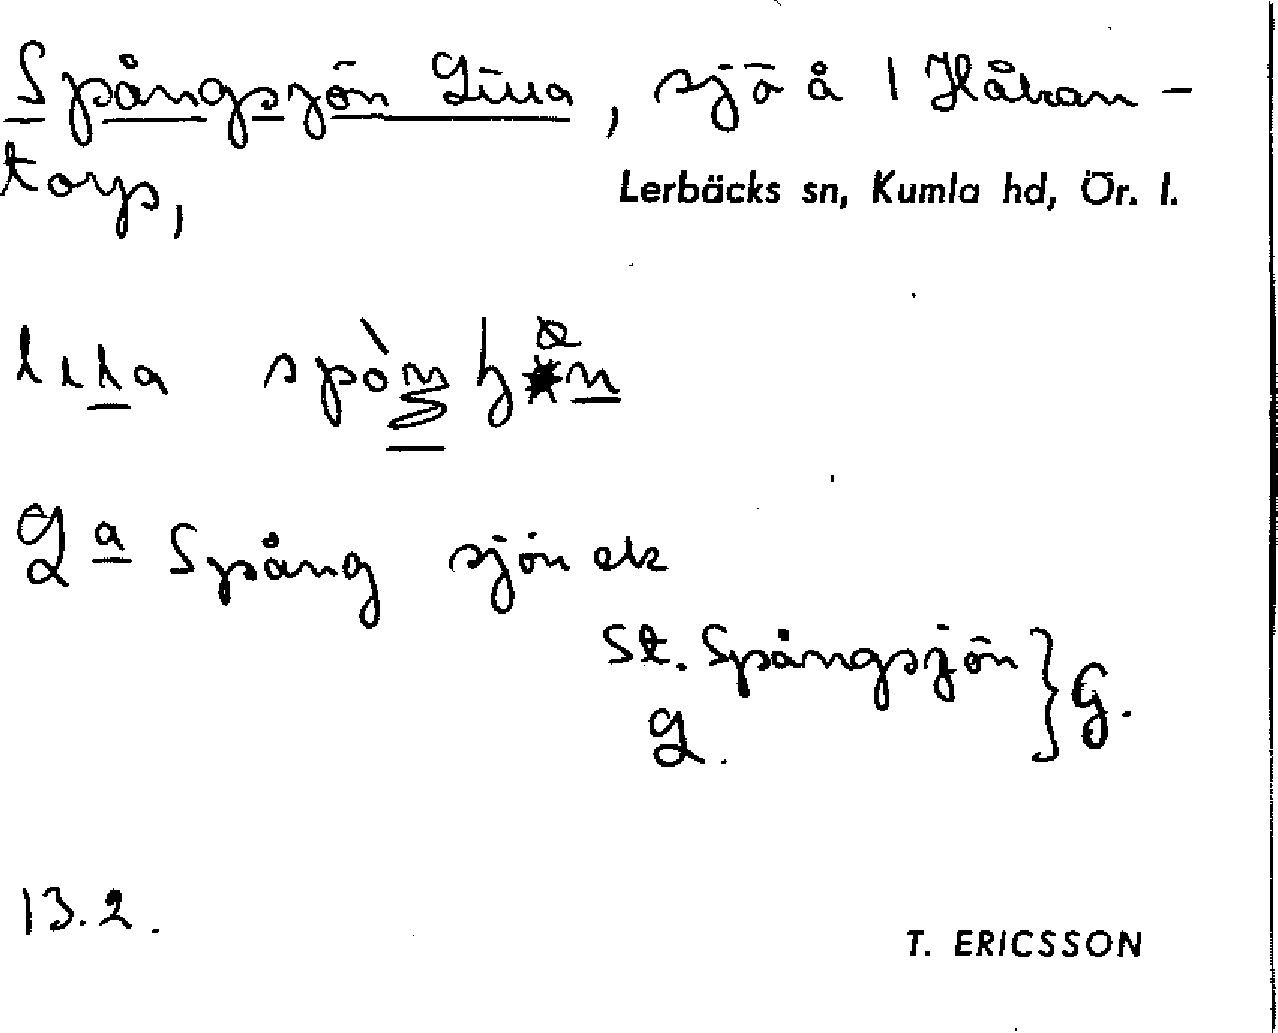 Spångsjön Lilla, sjö å 1 Håkan-
torp,
Lerbäcks sn, Kumla hd, Ör. l.
Spång sjön ek
St. Spångsjön } G.
L.
13.2.
T. ERICSSON